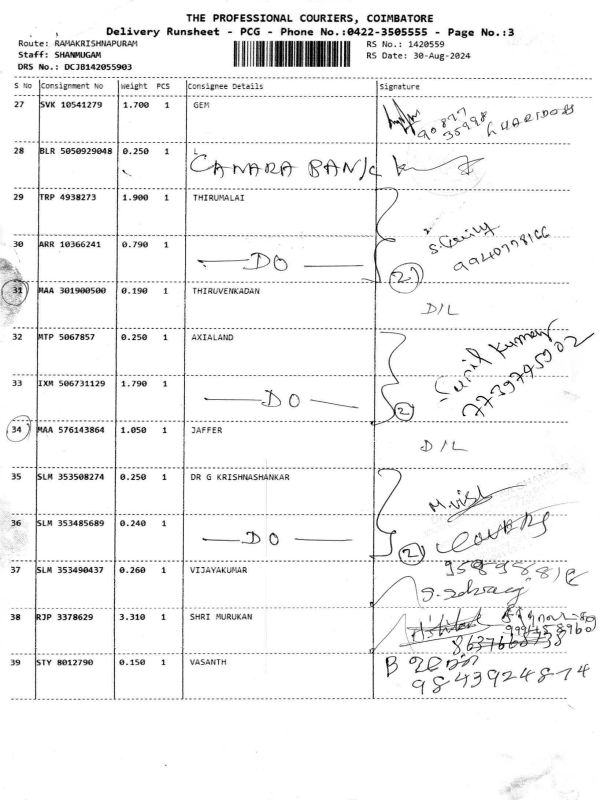 THE PROFESSIONAL COURIERS, COIMBATORE
Delivery Runsheet - PCG - Phone No.:0422-3505555 - Page No.:3
Route: RAMAKRISHNAPURAM RS No.: 1420559
Staff: SHANMUGAM RS Date: 30-Aug-2024
DRS No.: DCJB142055903
S No Consignment No Weight PCS Consignee Details Signature
27 SVK 10541279 1.700 1 GEM
90877
35998
28 BLR 5050929048 0.250 1 L
CANARA BANK
29 TRP 4938273 1.900 1 THIRUMALAI
30 ARR 10366241 0.790 1
— DO — (2) 9940778166
31 MAA 301900500 0.190 1 THIRUVENKADAN
D/L
32 MTP 5067857 0.250 1 AXIALAND
Sunil Kumar
33 IXM 506731129 1.790 1 7739745902
— DO — (2)
34 MAA 576143864 1.050 1 JAFFER
D/L
35 SLM 353508274 0.250 1 DR G KRISHNASHANKAR
36 SLM 353485689 0.240 1
— DO — (2)
37 SLM 353490437 0.260 1 VIJAYAKUMAR
38 RJP 3378629 3.310 1 SHRI MURUKAN
8637668738
39 STY 8012790 0.150 1 VASANTH B
9843924874